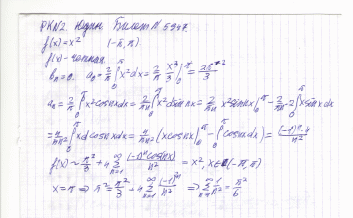 РК№2. Юдин Билет № 5947.
f(x)=x² (-π,π)
f(x)-четная.
bₙ=0. a₀=2/π ∫₀^π x²dx = 2/π x³/3 |₀^π = 2π²/3
aₙ=2/π ∫₀^π x²cosnxdx = 2/πn ∫₀^π x²dsinnx = 2/πn x²sinnx|₀^π - 2/πn·2∫₀^π xsinnxdx
=4/πn² ∫₀^π xdcosnxdx = 4/πn² (xcosnx|₀^π - ∫₀^π cosnxdx) = (-1)ⁿ·4/n²
f(x) ~ π²/3 + 4 ∑ₙ₌₁^∞ (-1)ⁿcosnx/n² = x², x∈(-π,π)
x=π ⇒ π²=π²/3 + 4∑ₙ₌₁^∞ (-1)²ⁿ/n² ⇒ ∑ₙ₌₁^∞ 1/n² = π²/6